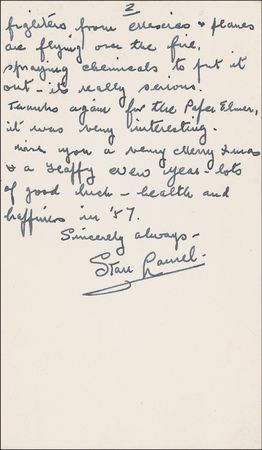 2
fighters from & planes
are flying over the fire,
spraying chemicals to put it
out - it's really serious.
Thanks again for the Paper Elmer,
it was very interesting.
wish you a very Merry Xmas
& a Happy New year - lots
of good luck - health and
happiness in '57.
Sincerely always -
Stan Laurel.